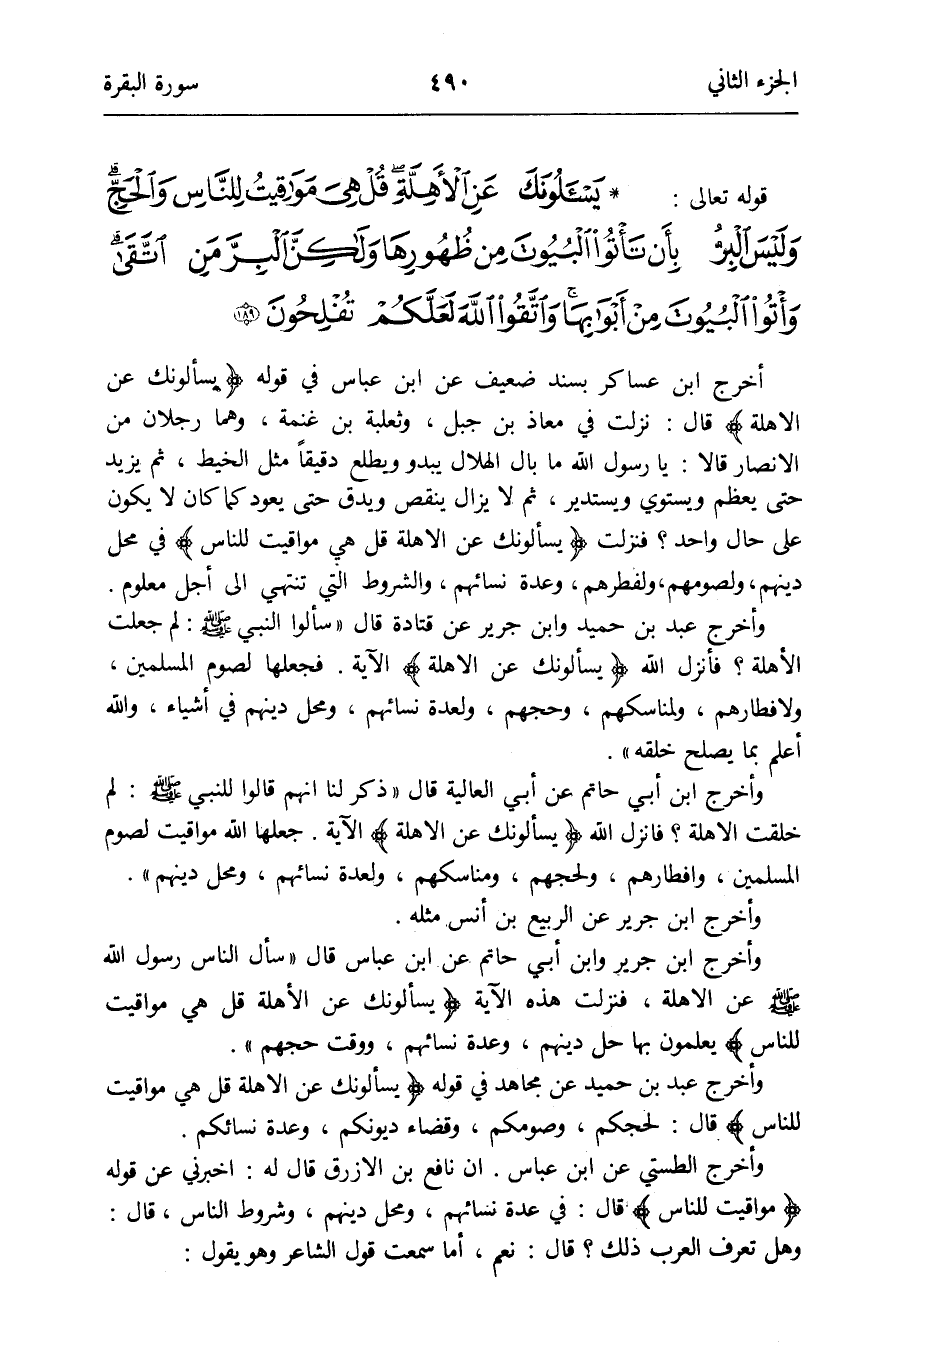 الجزء الثاني ٤٩٠ سورة البقرة
قوله تعالى : * يَسْـَٔلُونَكَ عَنِ ٱلْأَهِلَّةِ ۖ قُلْ هِيَ مَوَٰقِيتُ لِلنَّاسِ وَٱلْحَجِّ ۗ
وَلَيْسَ ٱلْبِرُّ بِأَن تَأْتُوا۟ ٱلْبُيُوتَ مِن ظُهُورِهَا وَلَـٰكِنَّ ٱلْبِرَّ مَنِ ٱتَّقَىٰ ۗ
وَأْتُوا۟ ٱلْبُيُوتَ مِنْ أَبْوَٰبِهَا ۚ وَٱتَّقُوا۟ ٱللَّهَ لَعَلَّكُمْ تُفْلِحُونَ ۝١٨٩
أخرج ابن عساكر بسند ضعيف عن ابن عباس في قوله ﴿ يسألونك عن
الاهلة ﴾ قال : نزلت في معاذ بن جبل ، وثعلبة بن غنمة ، وهما رجلان من
الانصار قالا : يا رسول الله ما بال الهلال يبدو ويطلع دقيقاً مثل الخيط ، ثم يزيد
حتى يعظم ويستوي ويستدير ، ثم لا يزال ينقص ويدق حتى يعود كما كان لا يكون
على حال واحد ؟ فنزلت ﴿ يسألونك عن الاهلة قل هي مواقيت للناس ﴾ في محل
دينهم، ولصومهم، ولفطرهم، وعدة نسائهم، والشروط التي تنتهي الى أجل معلوم .
وأخرج عبد بن حميد وابن جرير عن قتادة قال «سألوا النبي ﷺ : لم جعلت
الأهلة ؟ فأنزل الله ﴿ يسألونك عن الاهلة ﴾ الآية . فجعلها لصوم المسلمين ،
ولافطارهم ، ولمناسكهم ، وحجهم ، ولعدة نسائهم ، ومحل دينهم في أشياء ، والله
أعلم بما يصلح خلقه» .
وأخرج ابن أبي حاتم عن أبي العالية قال «ذكر لنا انهم قالوا للنبي ﷺ : لم
خلقت الاهلة ؟ فانزل الله ﴿ يسألونك عن الاهلة ﴾ الآية . جعلها الله مواقيت لصوم
المسلمين ، وافطارهم ، ولحجهم ، ومناسكهم ، ولعدة نسائهم ، ومحل دينهم» .
وأخرج ابن جرير عن الربيع بن أنس مثله .
وأخرج ابن جرير وابن أبي حاتم عن ابن عباس قال «سأل الناس رسول الله
ﷺ عن الاهلة ، فنزلت هذه الآية ﴿ يسألونك عن الأهلة قل هي مواقيت
للناس ﴾ يعلمون بها حل دينهم ، وعدة نسائهم ، ووقت حجهم » .
وأخرج عبد بن حميد عن مجاهد في قوله ﴿ يسألونك عن الاهلة قل هي مواقيت
للناس ﴾ قال : لحجكم ، وصومكم ، وقضاء ديونكم ، وعدة نسائكم .
وأخرج الطستي عن ابن عباس . ان نافع بن الازرق قال له : اخبرني عن قوله
﴿ مواقيت للناس ﴾ قال : في عدة نسائهم ، ومحل دينهم ، وشروط الناس ، قال :
وهل تعرف العرب ذلك ؟ قال : نعم ، أما سمعت قول الشاعر وهو يقول :